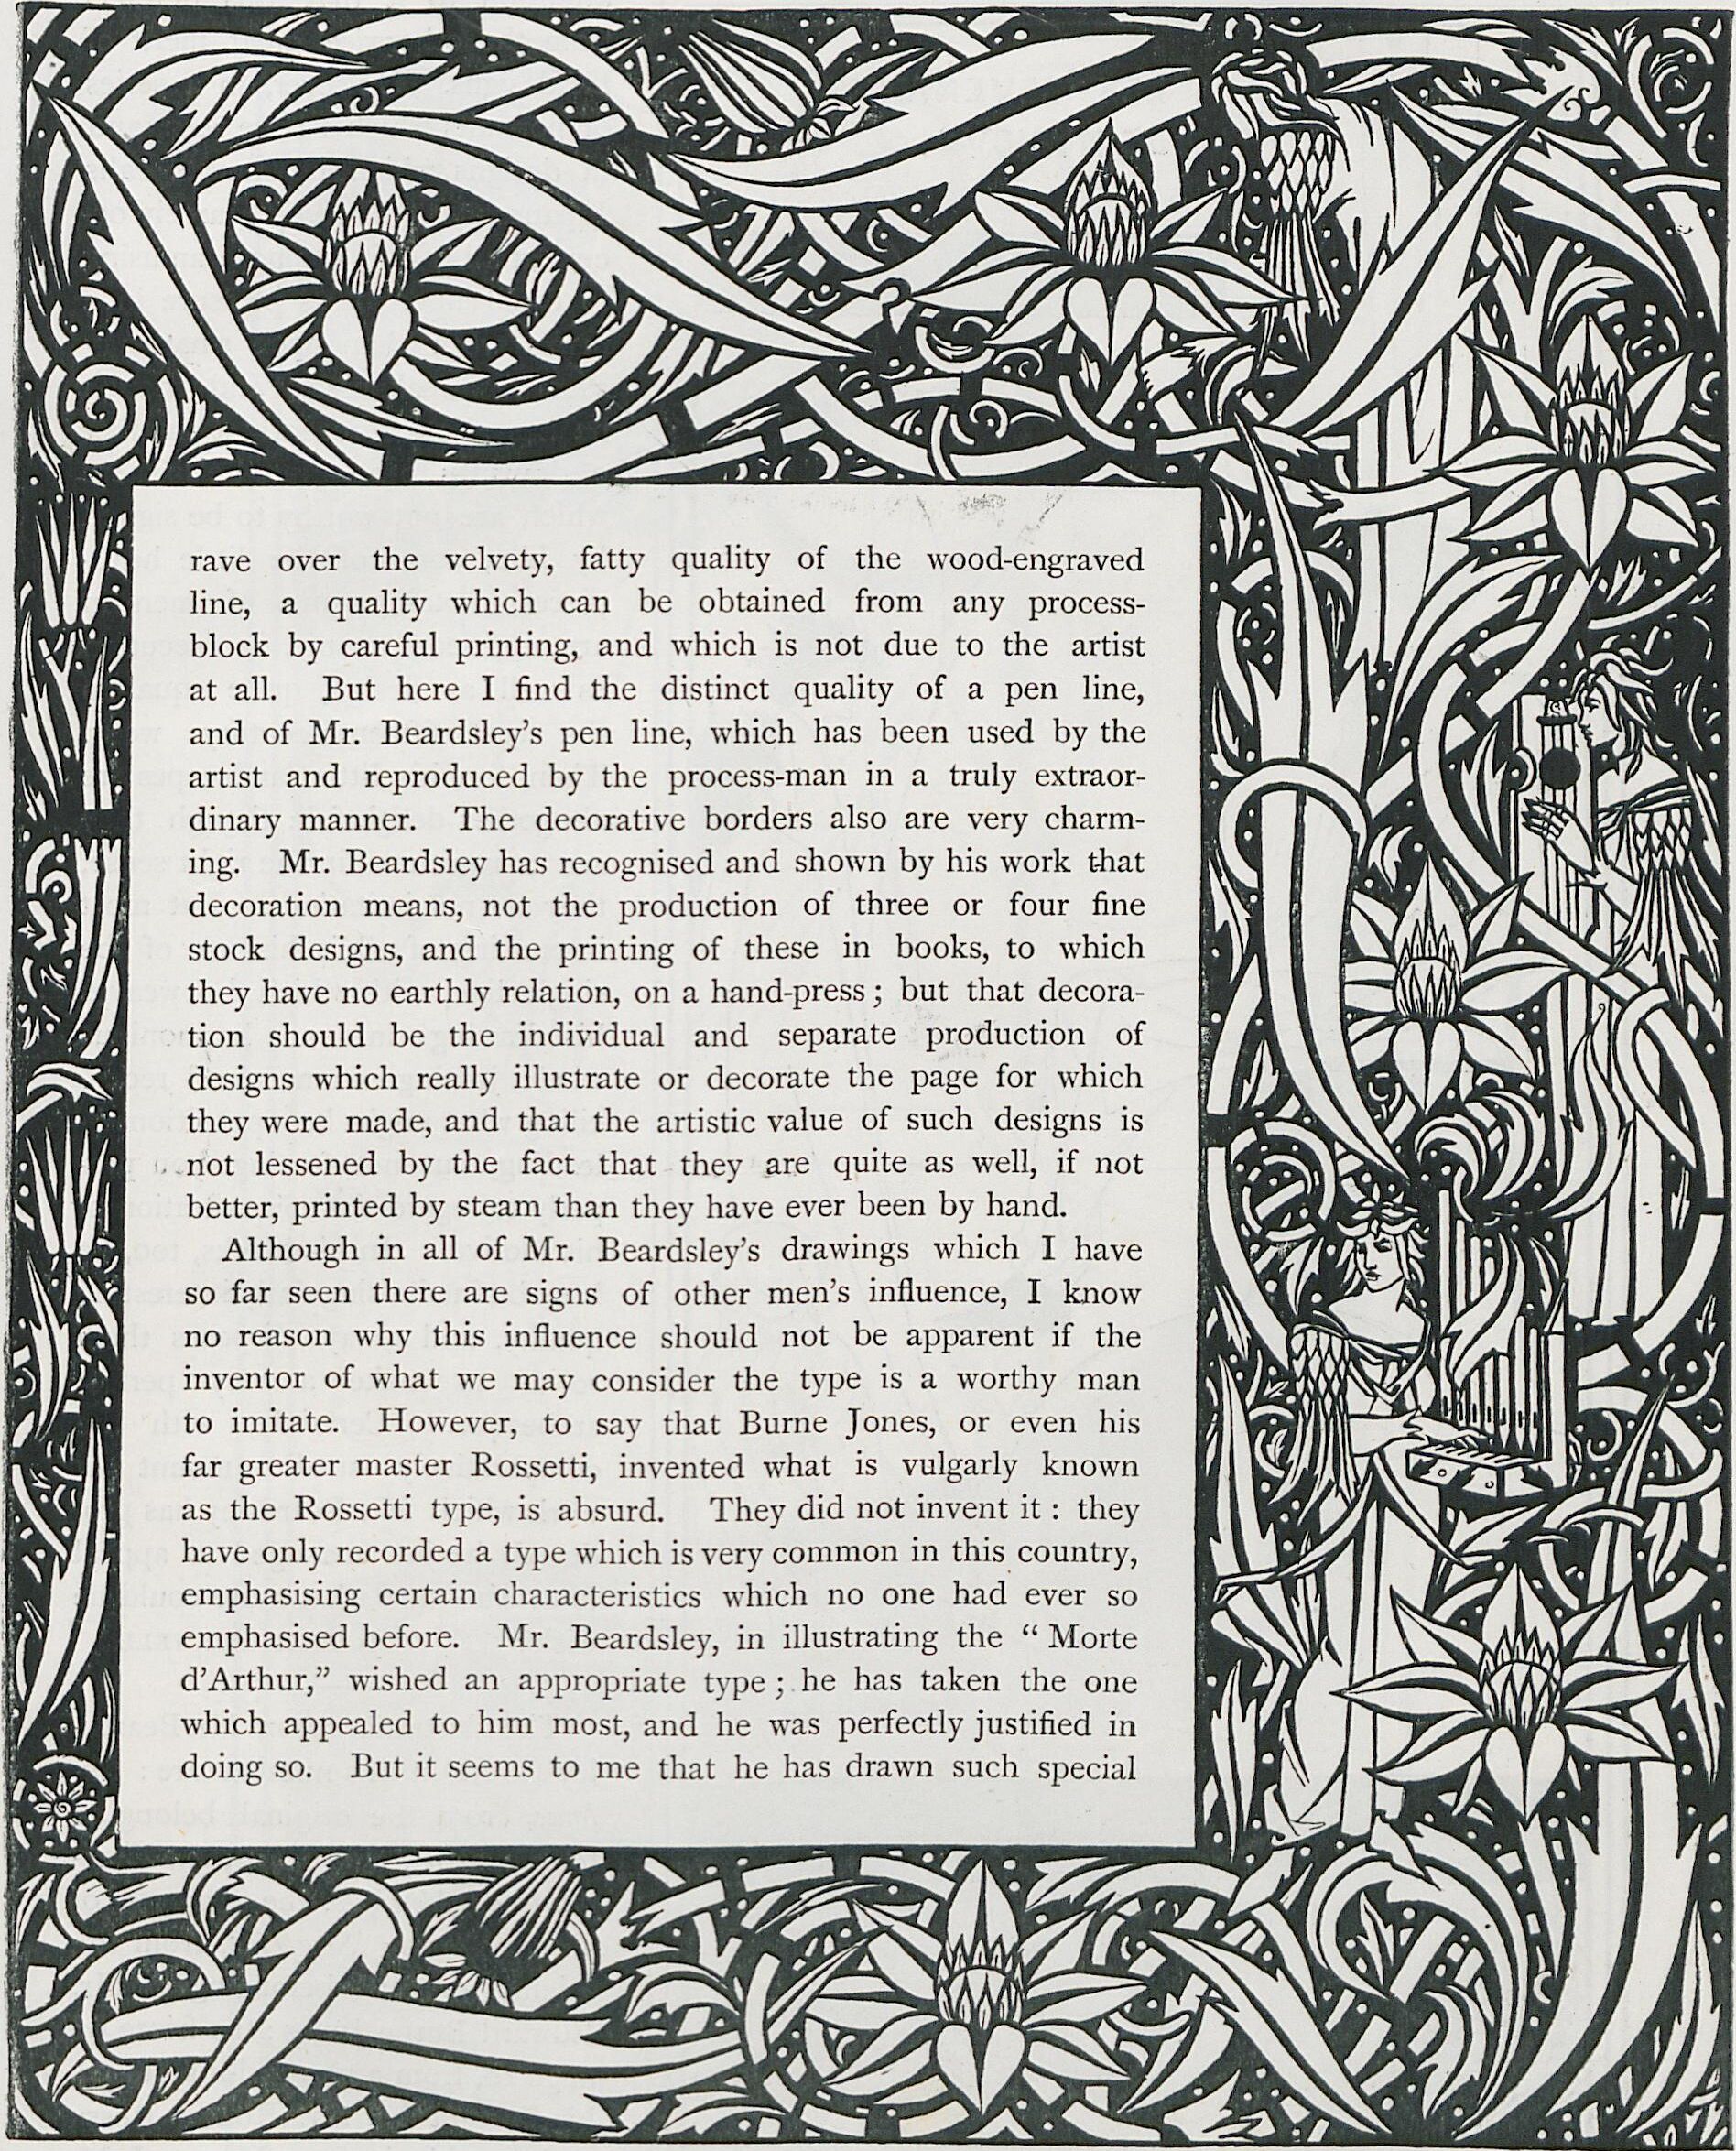 rave over the velvety, fatty quality of the wood-engraved
line, a quality which can be obtained from any process-
block by careful printing, and which is not due to the artist
at all. But here I find the distinct quality of a pen line,
and of Mr. Beardsley's pen line, which has been used by the
artist and reproduced by the process-man in a truly extraor-
dinary manner. The decorative borders also are very charm-
ing. Mr. Beardsley has recognised and shown by his work that
decoration means, not the production of three or four fine
stock designs, and the printing of these in books, to which
they have no earthly relation, on a hand-press; but that decora-
tion should be the individual and separate production of
designs which really illustrate or decorate the page for which
they were made, and that the artistic value of such designs is
not lessened by the fact that they are quite as well, if not
better, printed by steam than they have ever been by hand.
Although in all of Mr. Beardsley's drawings which I have
so far seen there are signs of other men's influence, I know
no reason why this influence should not be apparent if the
inventor of what we may consider the type is a worthy man
to imitate. However, to say that Burne Jones, or even his
far greater master Rossetti, invented what is vulgarly known
as the Rossetti type, is absurd. They did not invent it: they
have only recorded a type which is very common in this country,
emphasising certain characteristics which no one had ever so
emphasised before. Mr. Beardsley, in illustrating the "Morte
d'Arthur," wished an appropriate type; he has taken the one
which appealed to him most, and he was perfectly justified in
doing so. But it seems to me that he has drawn such special